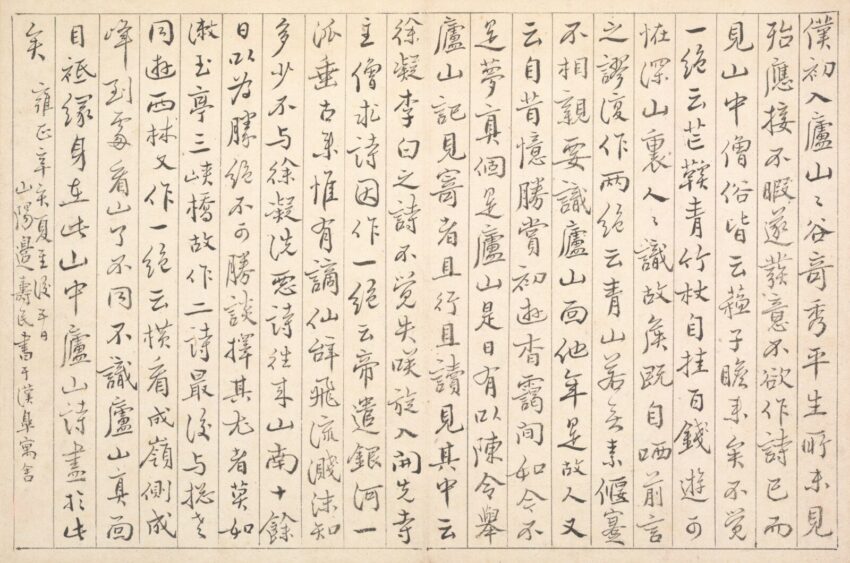 僕初入廬山々谷奇秀平生所未見
殆應接不暇遂發意不欲作詩已而
見山中僧俗皆云蘇子瞻来矣不覺
一絶云芒鞵青竹杖自挂百錢遊可
怪深山裏人々識故矦既自哂前言
之謬復作兩絶云青山若无素偃蹇
不相親要識廬山面他年是故人又
云自昔憶勝賞初遊杳靄間如今不
是夢真個是廬山是日有以陳令舉
廬山記見寄者且行且讀見其中云
徐凝李白之詩不覺失咲旋入開先寺
主僧求詩因作一絶云帝遣銀河一
派垂古来惟有謫仙辭飛流濺沫知
多少不与徐凝洗惡詩往来山南十餘
日以為勝絶不可勝談擇其尤者莫如
漱玉亭三峡橋故作二詩最後与揔老
同遊西林又作一絶云横看成嶺側成
峰到處看山了不同不識廬山真面
目秪緣身在此山中廬山詩盡於此
矣
雍正辛亥夏至後五日
山陽邊壽民書于漢皋寓舍